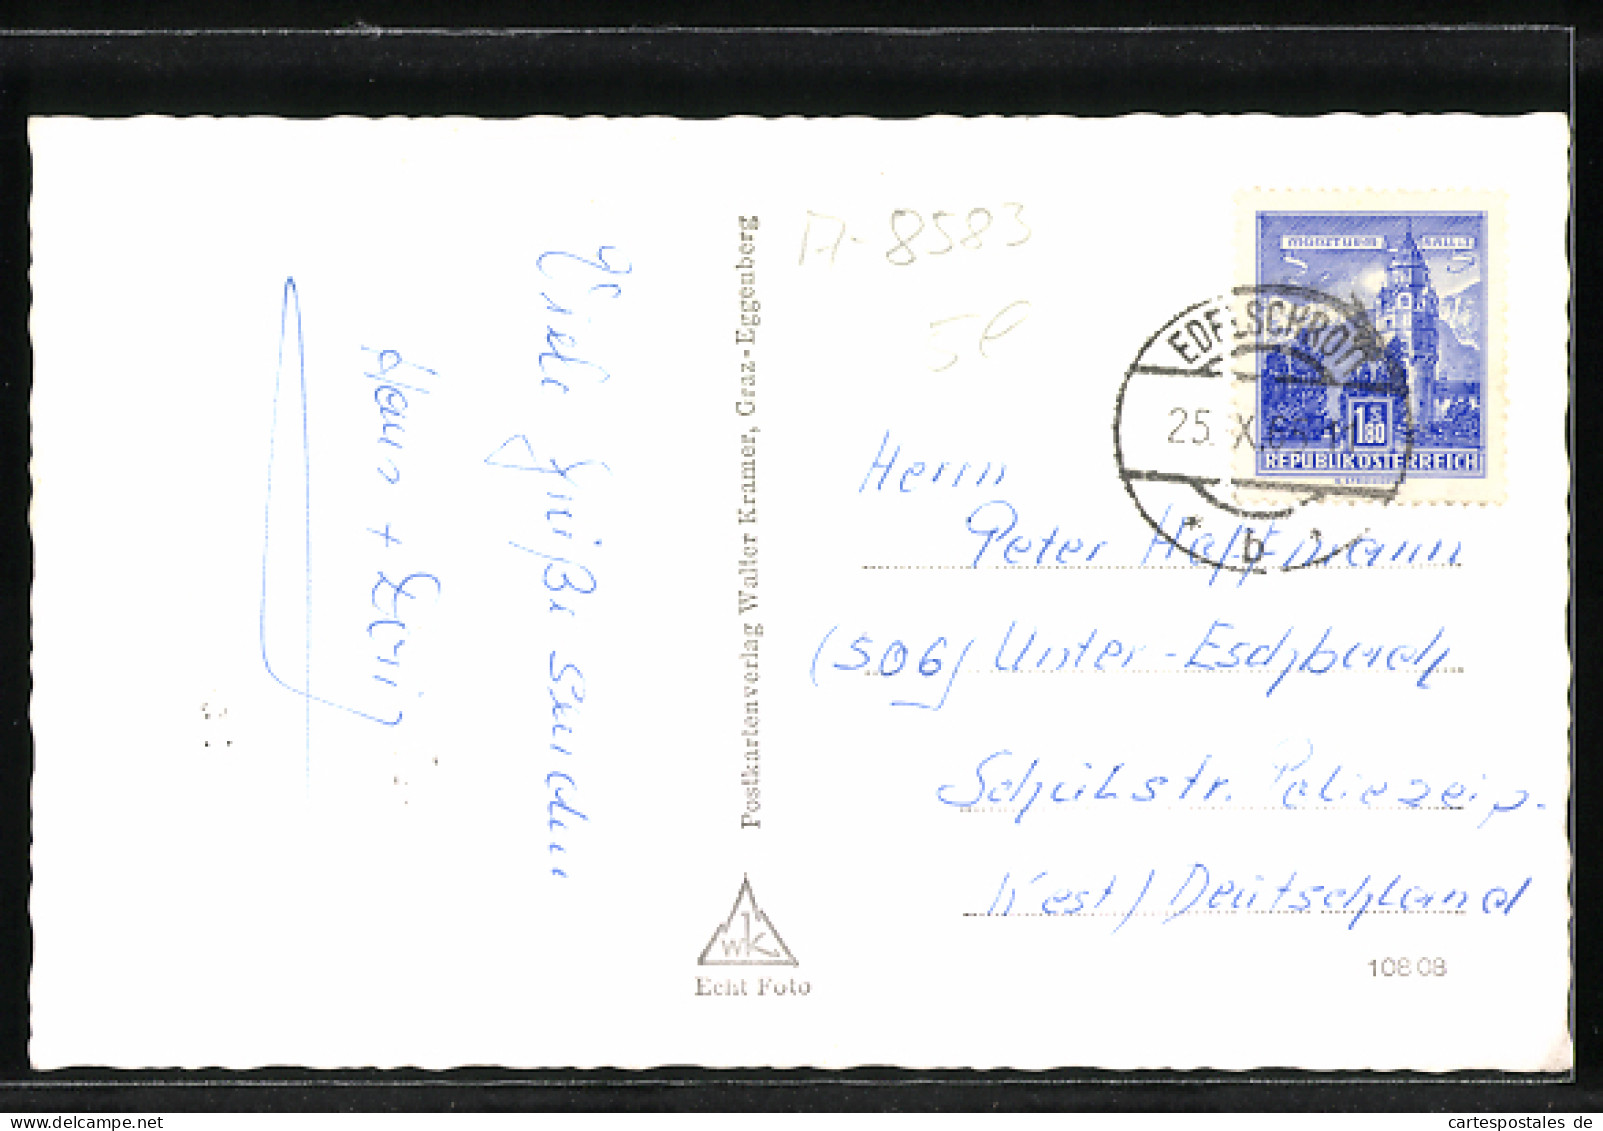 Viele Grüße senden
Hans +
Postkartenverlag Walter Kramer, Graz-Eggenberg
WK
Echt Foto
A-8583
MÜNZTURM HALL I. T.
1.80 S
REPUBLIK ÖSTERREICH
EDELSCHROTT
25. X. 65
* b *
Herrn
Peter Hoffmann
(506) Unter-Eschbach
Schulstr.
West/Deutschland
108 08
cartespostales de